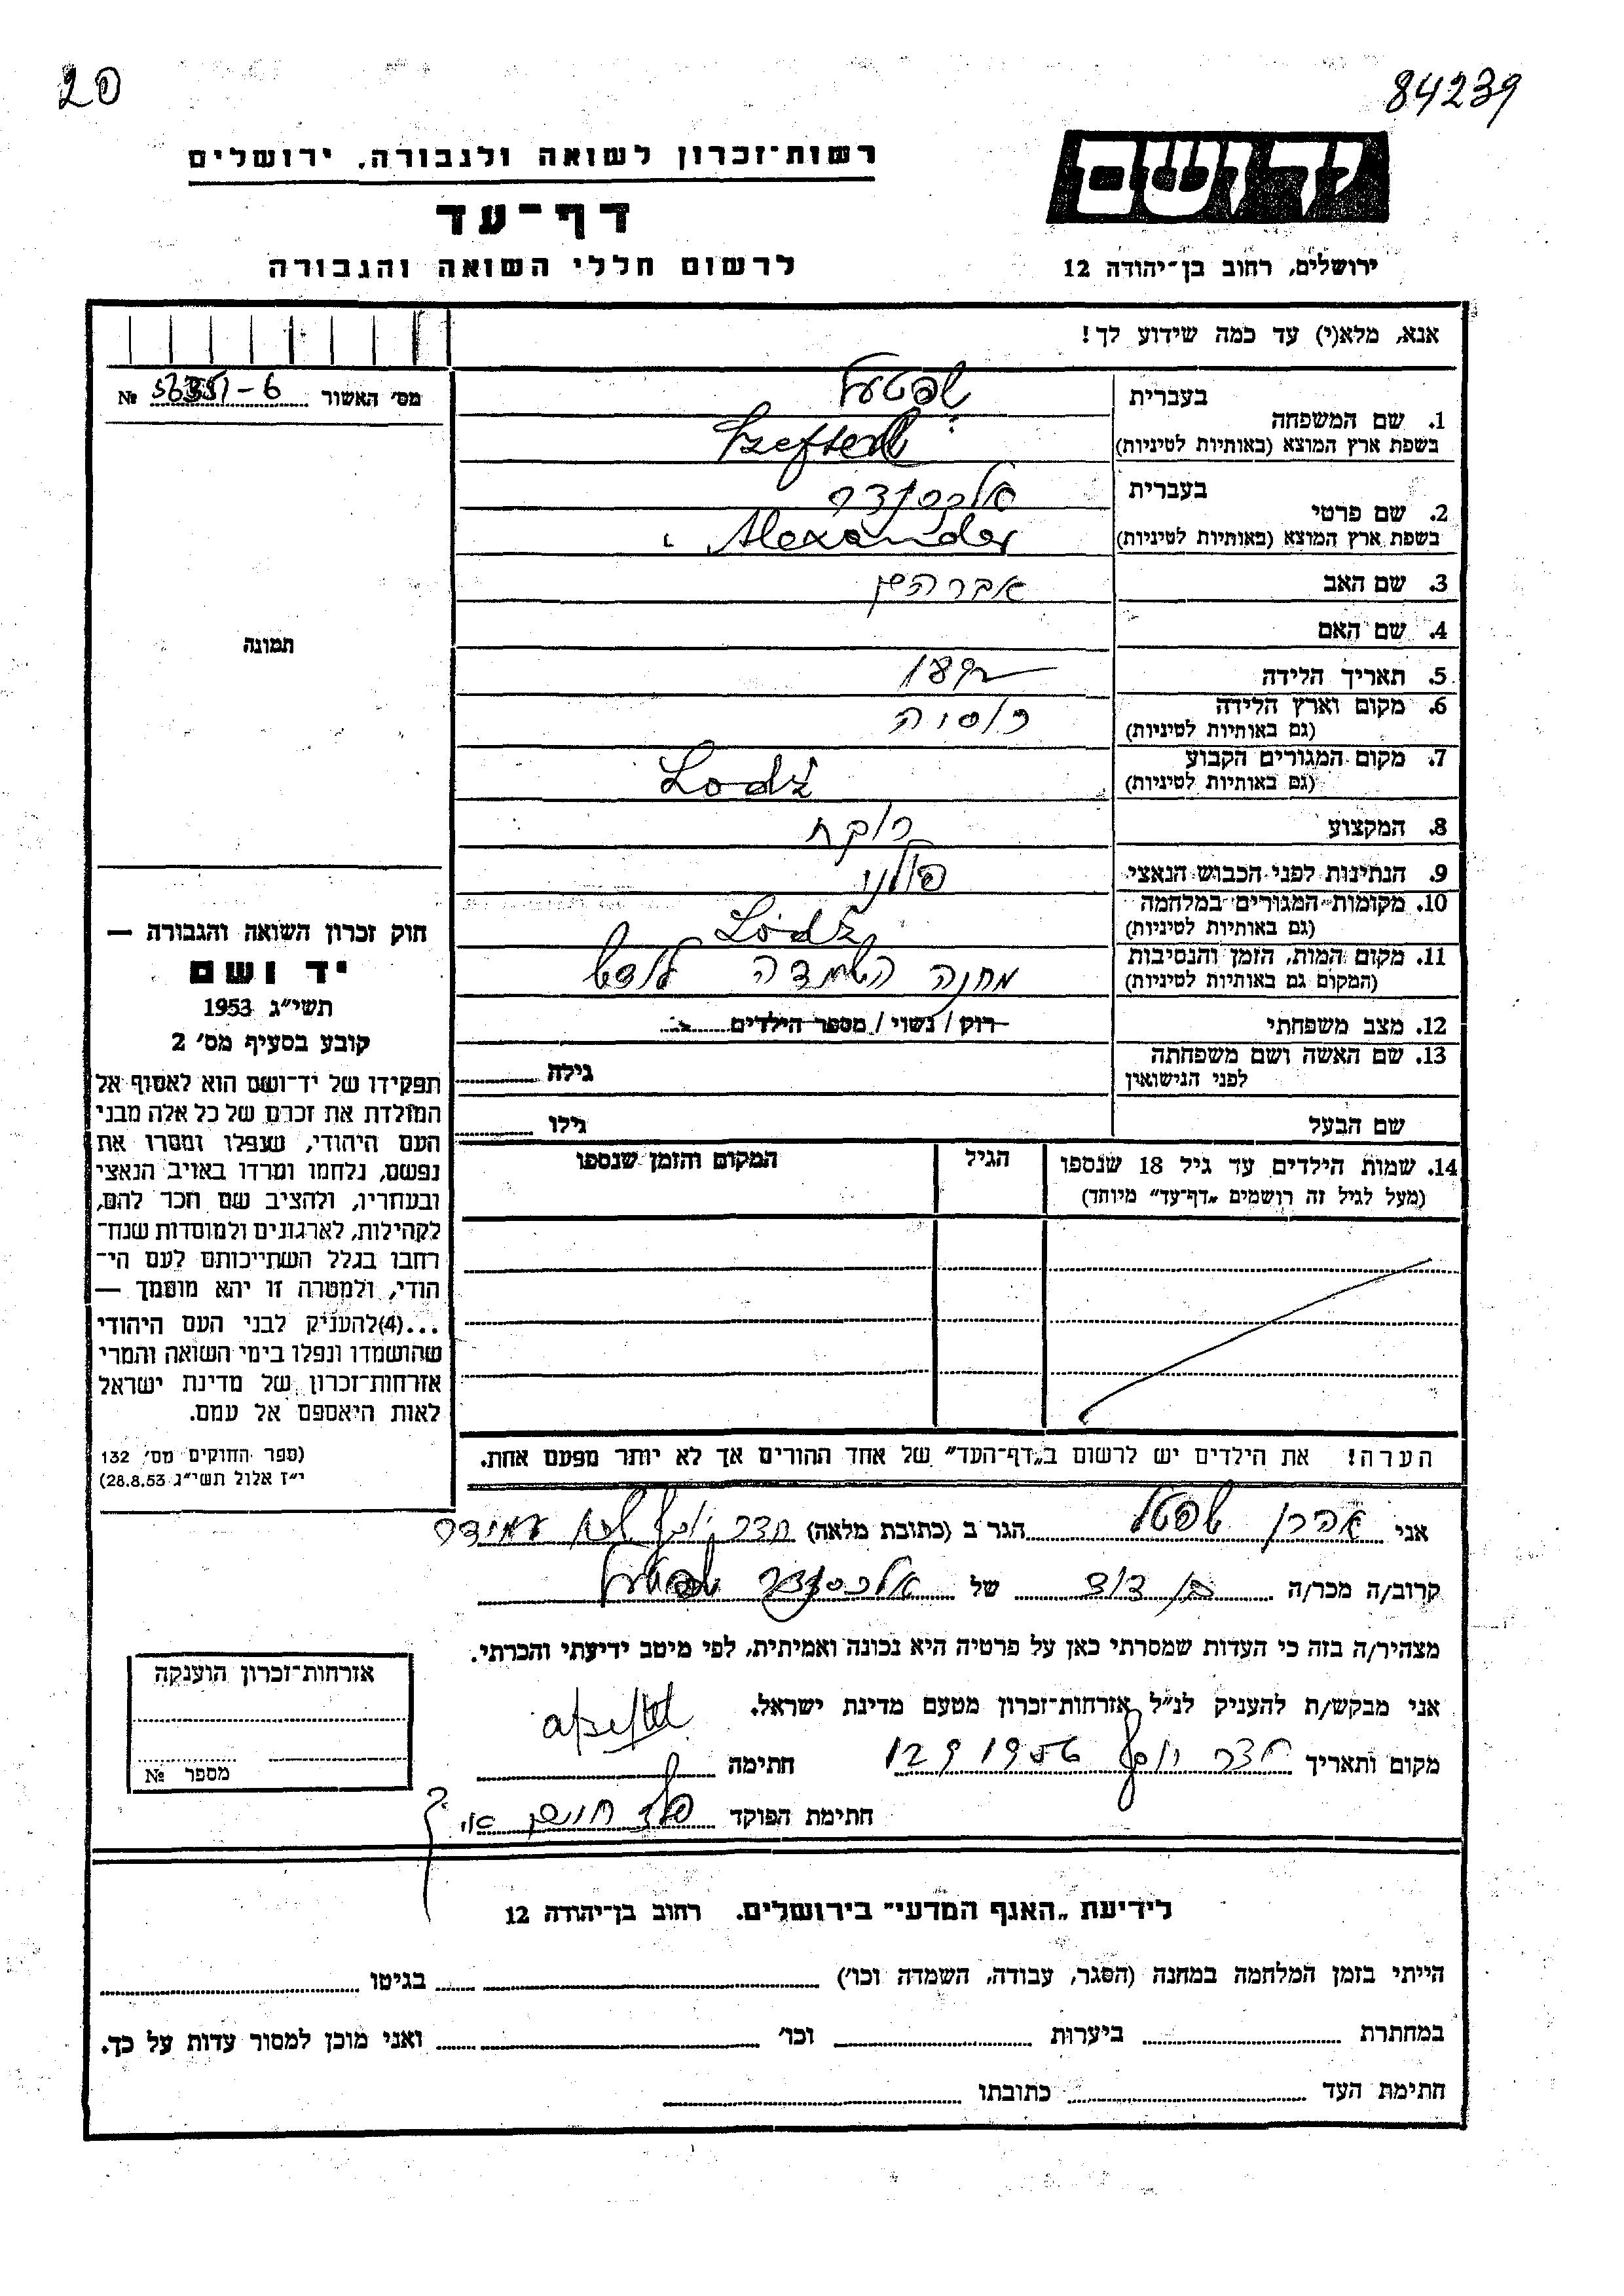 20
84239
ידושם
רשות־זכרון לשואה ולגבורה, ירושלים
דף־עד
לרשום חללי השואה והגבורה
ירושלים, רחוב בן־יהודה 12
אנא, מלא(י) עד כמה שידוע לך!
מס׳ האשור №
1. שם המשפחה
בעברית
שפטעל
בשפת ארץ המוצא (באותיות לטיניות)
2. שם פרטי
בעברית
אלכסנדר
בשפת ארץ המוצא (באותיות לטיניות) Alexander
3. שם האב אברהם
4. שם האם
5. תאריך הלידה
6. מקום וארץ הלידה רוסיה
(גם באותיות לטיניות)
7. מקום המגורים הקבוע Lodź
(גם באותיות לטיניות)
8. המקצוע רוקח
9. הנתינות לפני הכבוש הנאצי פולני
10. מקומות המגורים במלחמה Lódź
(גם באותיות לטיניות)
11. מקום המות, הזמן והנסיבות מחנה השמדה
(המקום גם באותיות לטיניות)
12. מצב משפחתי רוק / נשוי / מספר הילדים
13. שם האשה ושם משפחתה
לפני הנישואין גילה
שם הבעל גילו
14. שמות הילדים עד גיל 18 שנספו הגיל המקום והזמן שנספו
(מעל לגיל זה רושמים „דף־עד” מיוחד)
הערה! את הילדים יש לרשום ב„דף־העד” של אחד ההורים אך לא יותר מפעם אחת.
תמונה
חוק זכרון השואה והגבורה —
יד ושם
תשי״ג 1953
קובע בסעיף מס׳ 2
תפקידו של יד־ושם הוא לאסוף אל
המולדת את זכרם של כל אלה מבני
העם היהודי, שנפלו ומסרו את
נפשם, נלחמו ומרדו באויב הנאצי
ובעוזריו, ולהציב שם וזכר להם,
לקהילות, לארגונים ולמוסדות שנח־
רבו בגלל השתייכותם לעם הי־
הודי, ולמטרה זו יהא מוסמך —
...(4)להעניק לבני העם היהודי
שהושמדו ונפלו בימי השואה והמרי
אזרחות־זכרון של מדינת ישראל
לאות היאספם אל עמם.
(ספר החוקים מס׳ 132
י״ז אלול תשי״ג 28.8.53)
אני אהרן שפטל הגר ב (כתובת מלאה)
קרוב/ה מכר/ה בן דוד של אלכסנדר שפטעל
מצהיר/ה בזה כי העדות שמסרתי כאן על פרטיה היא נכונה ואמיתית, לפי מיטב ידיעתי והכרתי.
אני מבקש/ת להעניק לנ״ל אזרחות־זכרון מטעם מדינת ישראל.
מקום ותאריך 12 9 1956 חתימה
חתימת הפוקד
אזרחות־זכרון הוענקה
מספר №
לידיעת „האגף המדעי” בירושלים. רחוב בן־יהודה 12
הייתי בזמן המלחמה במחנה (הסגר, עבודה, השמדה וכו׳) בגיטו
במחתרת ביערות וכו׳ ואני מוכן למסור עדות על כך.
חתימת העד כתובתו